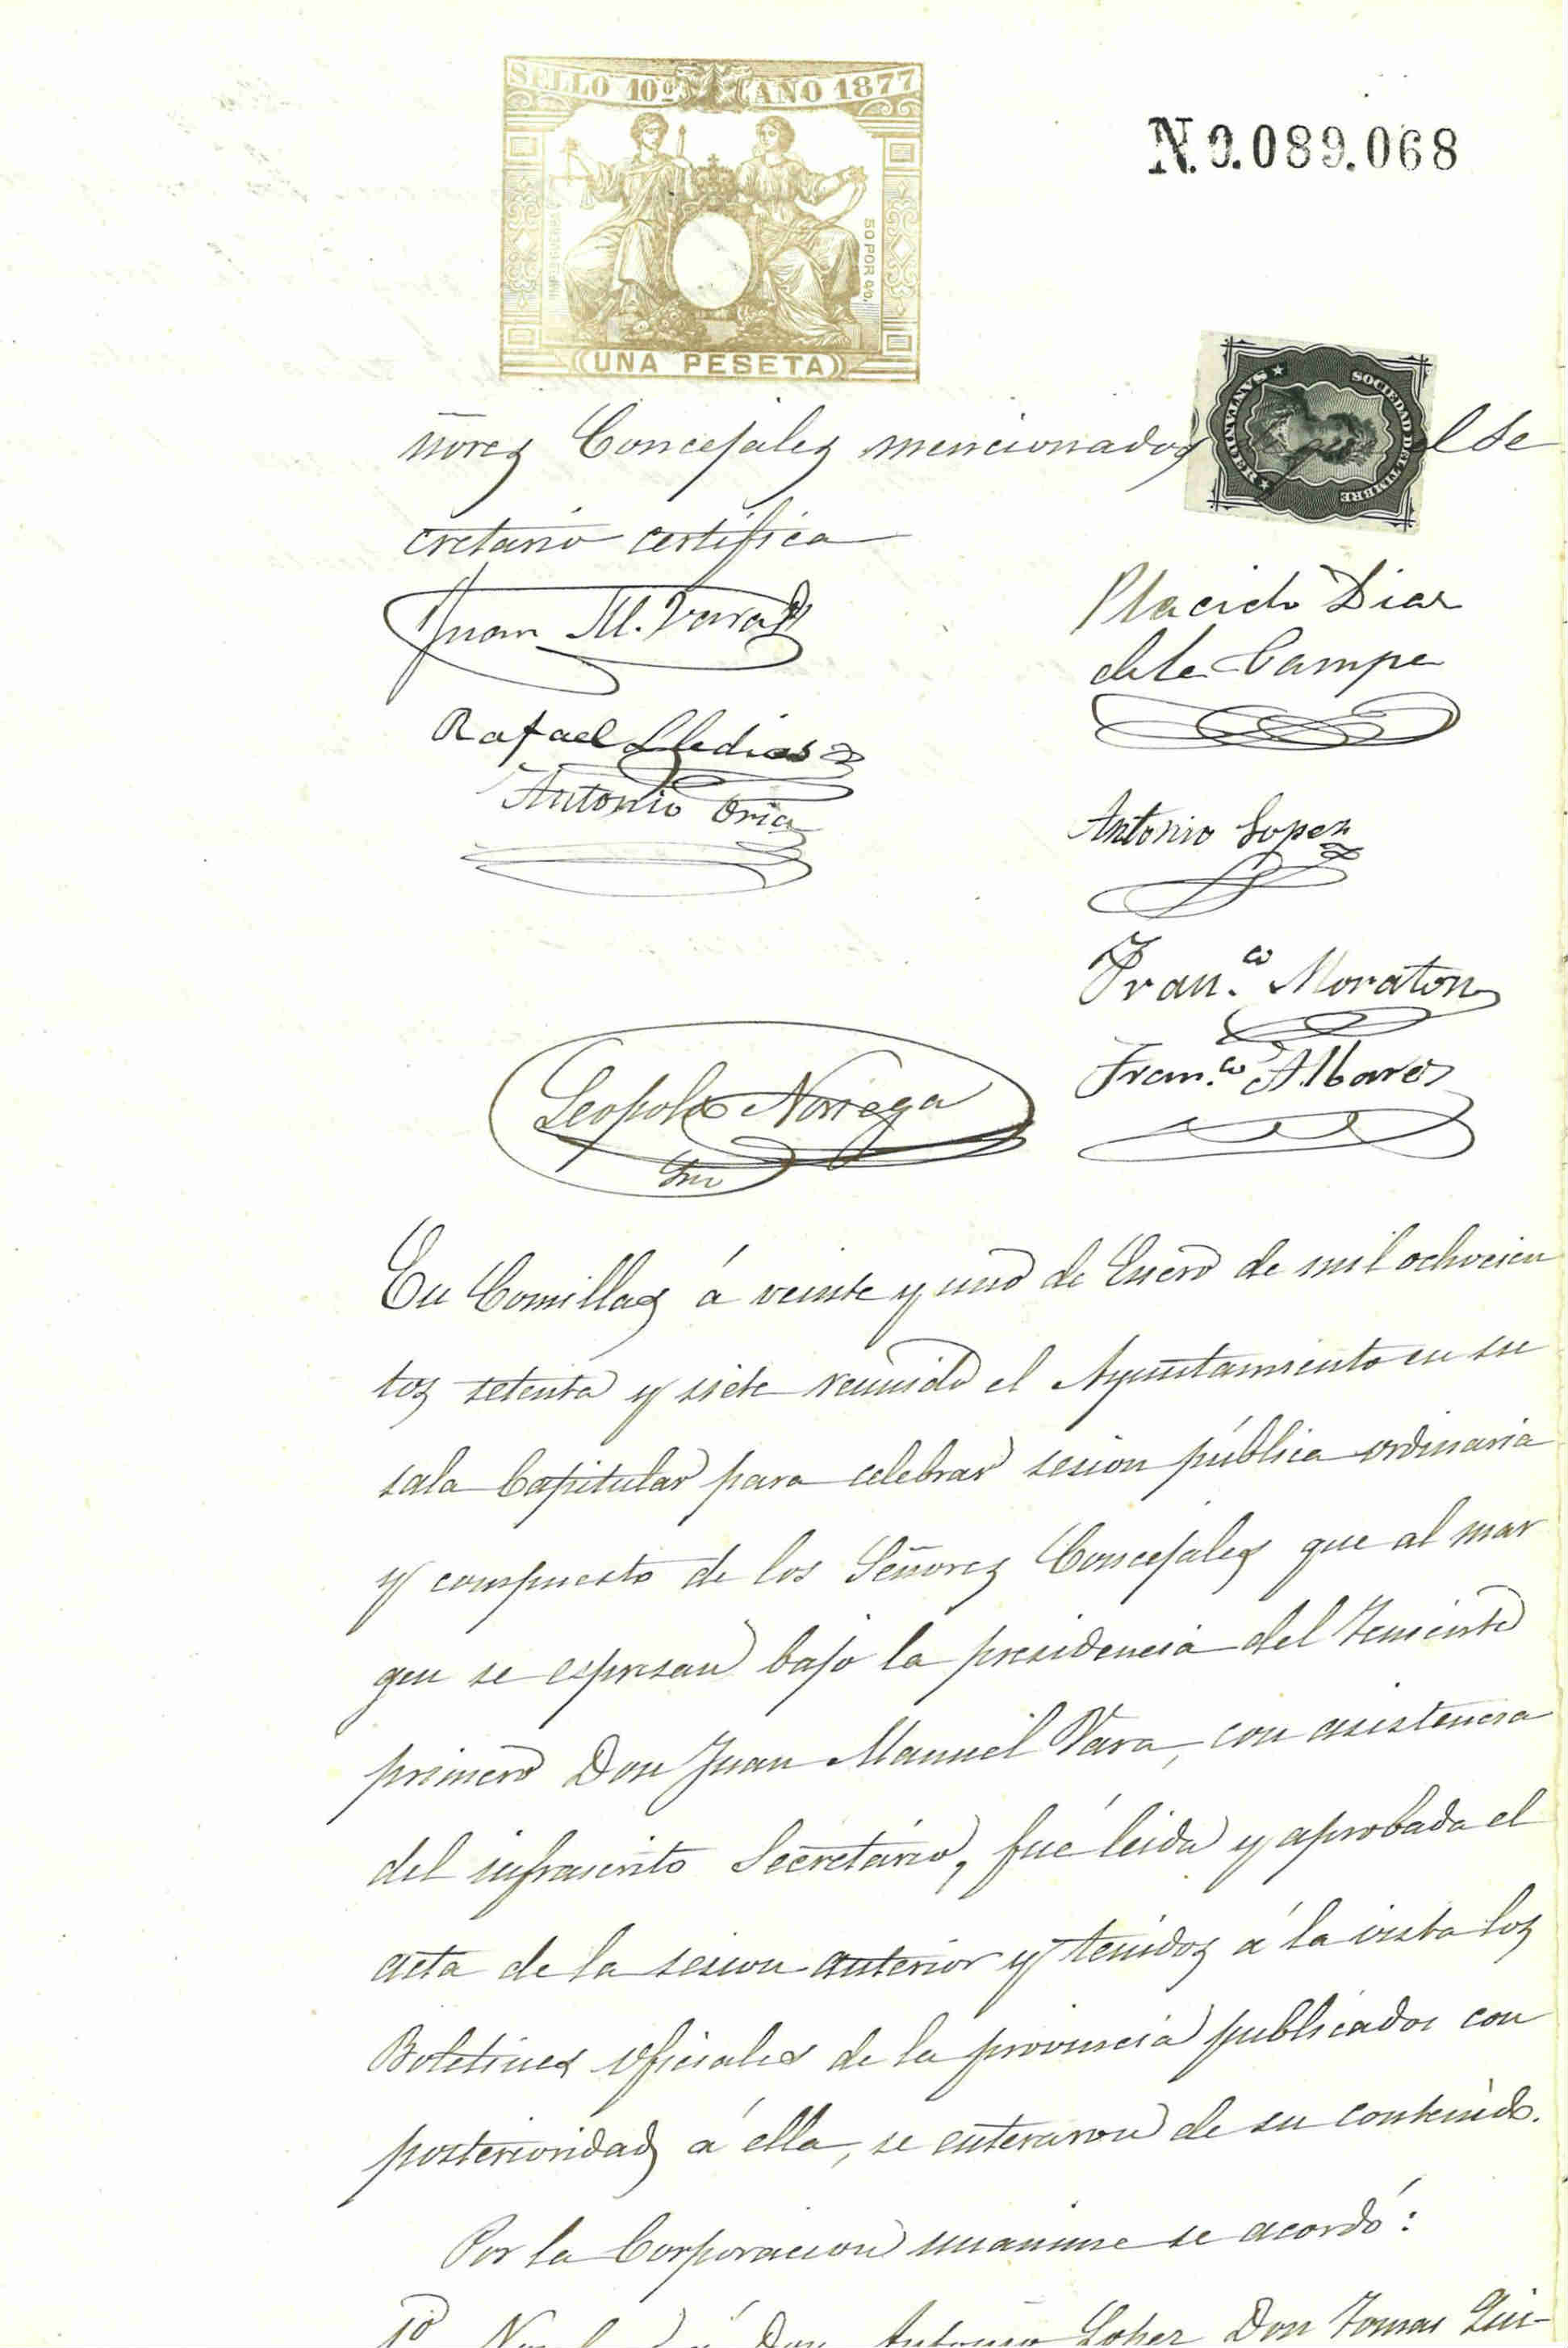 SELLO 10º AÑO 1877
50 POR 0/0.
UNA PESETA
N.0.089.068
SANTANDER
SOCIEDAD DEL TIMBRE
ñores Concejales mencionados el Se
cretario certifica
Juan M. Vara
Placido Dias
de la Campa
Rafael Lledias
Antonio Oria
Antonio Lopez
Fran.co Moraton
Fran.co Albares
Leopoldo Noriega
Srio
En Comillas á veinte y uno de Enero de mil ochocien
tos setenta y siete reunido el Ayuntamiento en su
sala Capitular para celebrar sesion pública ordinaria
y compuesto de los Señores Concejales que al mar
gen se espresan bajo la presidencia del Teniente
primero Don Juan Manuel Vara, con asistencia
del infrascrito Secretario, fué leida y aprobada el
acta de la sesion anterior y tenidos á la vista los
Boletines oficiales de la provincia publicados con
posterioridad á ella, se enteraron de su contenido.
Por la Corporacion unanime se acordó:
1º á Don Antonio Lopez Don Tomas